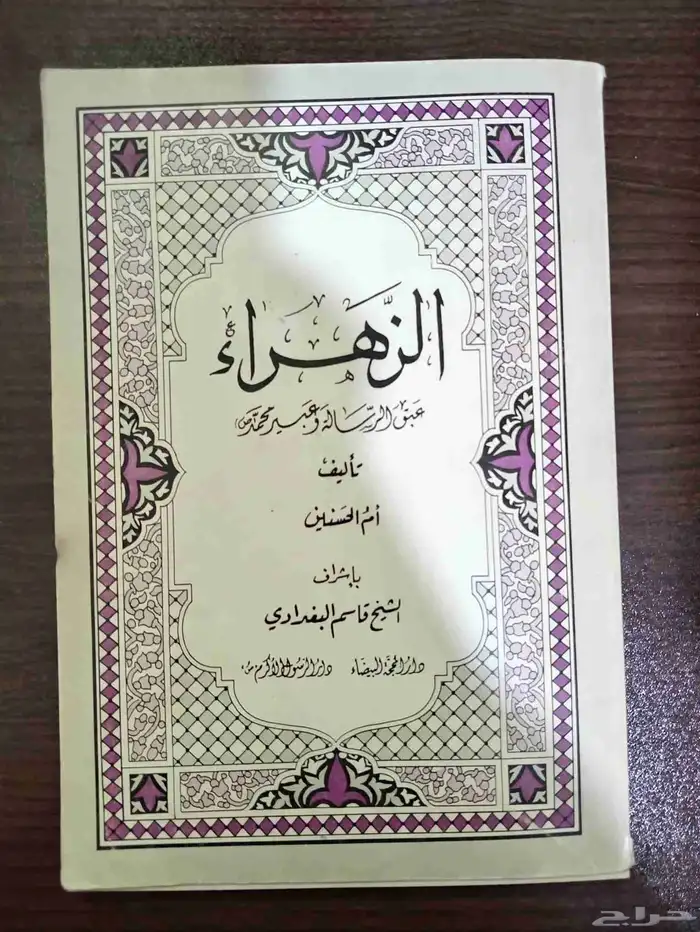 الزَّهراءُ
عبق الرِّسالة وعبير محمَّد (ص)
تأليف
أم الحسنين
بإشراف
الشيخ قاسم البغدادي
دار المحجة البيضاء دار الرسول الأكرم (ص)
حراج